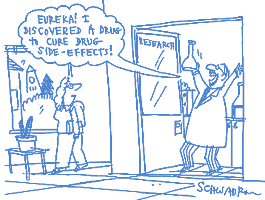 EUREKA! I
DISCOVERED A DRUG
to CURE DRUG
SIDE-EFFECTS!
RESEARCH
SCHWADRON